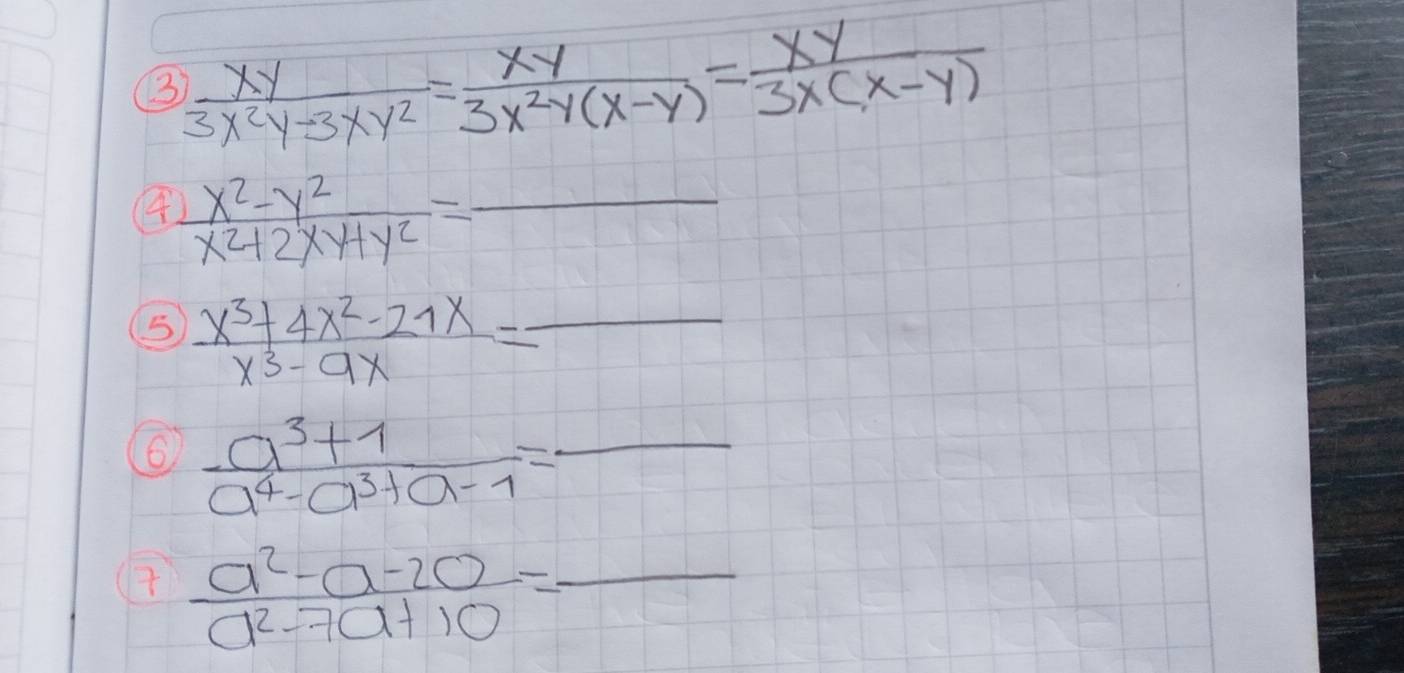 ③ xy/(3x²y-3xy²) = xy/(3x²y(x-y)) = xy/(3x(x-y))
④ (x²-y²)/(x²+2xy+y²) = ———
⑤ (x³+4x²-21x)/(x³-9x) = ———
⑥ (a³+1)/(a⁴-a³+a-1) = ———
⑦ (a²-a-20)/(a²-7a+10) = ———